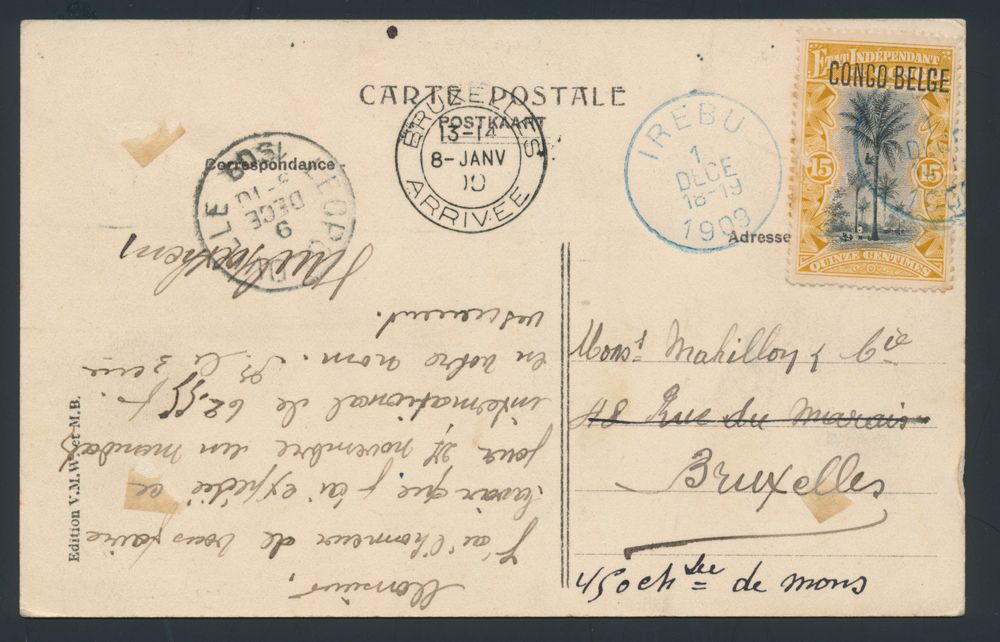 CARTE POSTALE
POSTKAART
Correspondance
Adresse
ETAT INDÉPENDANT
CONGO BELGE
15 15
QUINZE CENTIMES
IREBU
1
DECE
18-19
1909
BRUXELLES
13-14
8-JANV
10
ARRIVÉE
LEOPOLDVILLE
9
DECE
Mons! Mahillon & Cie
48 Rue du Marais
Bruxelles
450 ch sée de mons
Monsieur,
J'ai l'honneur de vous faire
savoir que j'ai expédié ce
jour 27 novembre un mandat
international de 62.55 f.
en votre nom. P. le 3ème
versement.
Edition V.M.W. et M.B.